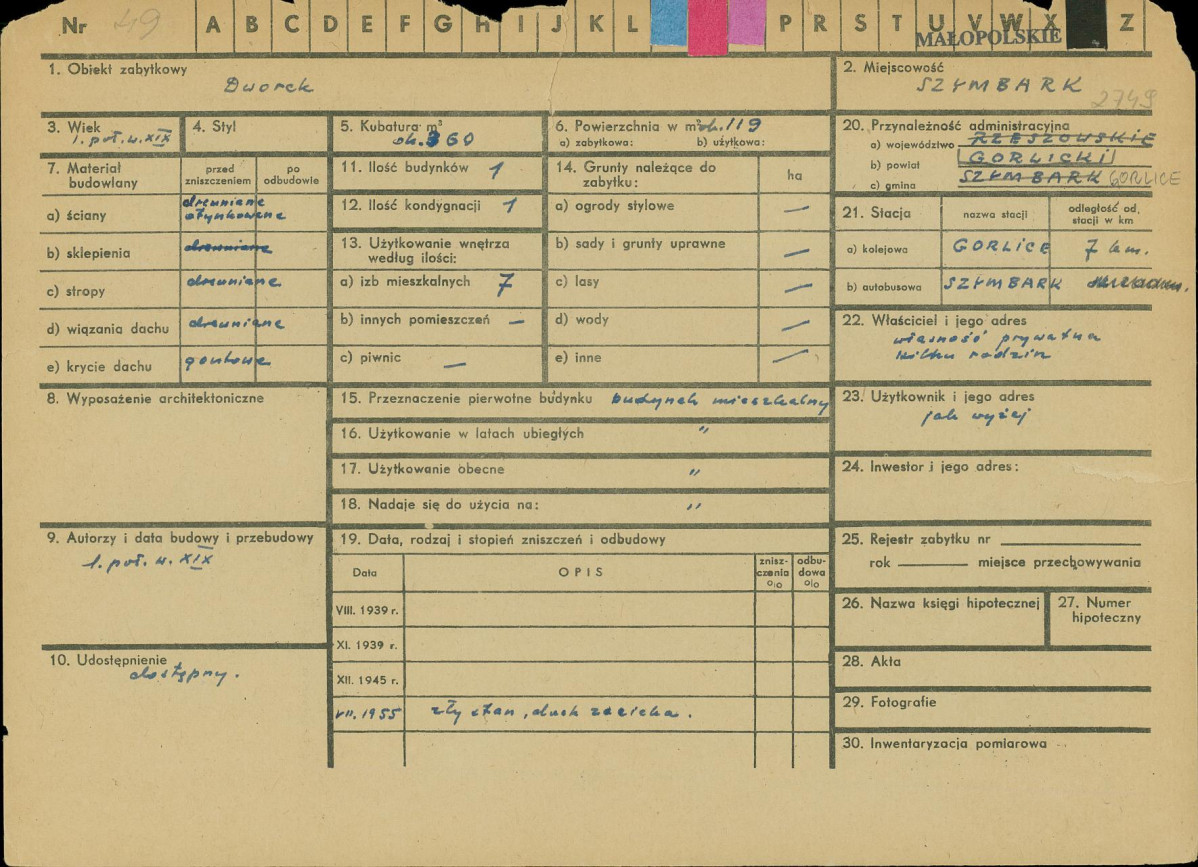 Nr 49 A B C D E F G H I J K L P R S T U V W X Z
MAŁOPOLSKIE
1. Obiekt zabytkowy
Dworek
2. Miejscowość
SZYMBARK
2749
3. Wiek
1. poł. w. XIX
4. Styl
5. Kubatura m³
ok. 360
6. Powierzchnia w m² ok. 119
a) zabytkowa: b) użytkowa:
20. Przynależność administracyjna
a) województwo RZESZOWSKIE
b) powiat GORLICKI
c) gmina SZYMBARK GORLICE
7. Materiał budowlany
przed zniszczeniem
po odbudowie
a) ściany drewniane otynkowane
b) sklepienia drewniane
c) stropy drewniane
d) wiązania dachu drewniane
e) krycie dachu gontowe
11. Ilość budynków 1
12. Ilość kondygnacji 1
13. Użytkowanie wnętrza
według ilości:
a) izb mieszkalnych 7
b) innych pomieszczeń —
c) piwnic —
14. Grunty należące do
zabytku: ha
a) ogrody stylowe —
b) sady i grunty uprawne —
c) lasy —
d) wody —
e) inne —
21. Stacja
nazwa stacji
odległość od stacji w km
a) kolejowa GORLICE 7 km.
b) autobusowa SZYMBARK
22. Właściciel i jego adres
własność prywatna
kilku rodzin
8. Wyposażenie architektoniczne
15. Przeznaczenie pierwotne budynku budynek mieszkalny
16. Użytkowanie w latach ubiegłych "
17. Użytkowanie obecne "
18. Nadaje się do użycia na: "
23. Użytkownik i jego adres
jak wyżej
24. Inwestor i jego adres:
9. Autorzy i data budowy i przebudowy
1. poł. w. XIX
19. Data, rodzaj i stopień zniszczeń i odbudowy
Data OPIS
znisz-
czenia
o|o
odbu-
dowa
o|o
VIII. 1939 r.
XI. 1939 r.
XII. 1945 r.
VII. 1955 zły stan, dach zacieka.
25. Rejestr zabytku nr
rok miejsce przechowywania
26. Nazwa księgi hipotecznej
27. Numer
hipoteczny
10. Udostępnienie
dostępny.
28. Akta
29. Fotografie
30. Inwentaryzacja pomiarowa